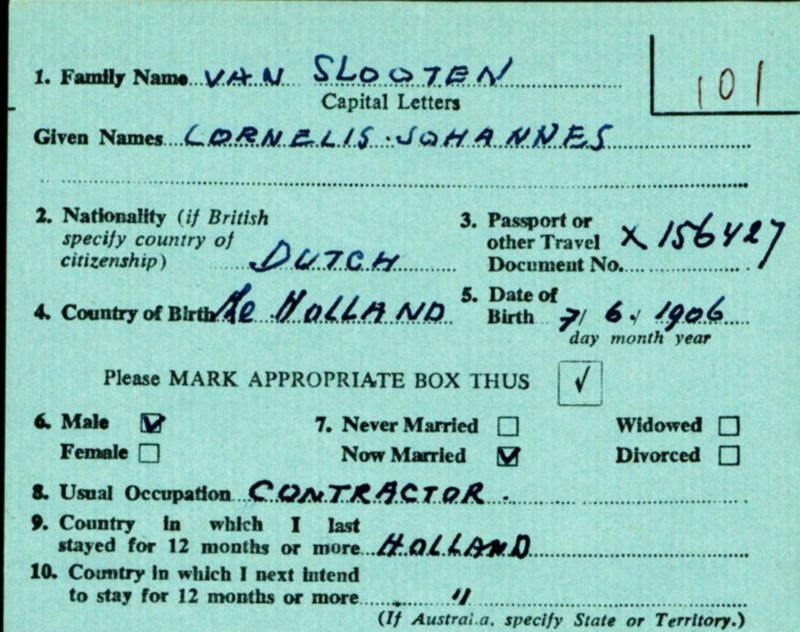 1. Family Name VAN SLOOTEN
101
Capital Letters
Given Names CORNELIS JOHANNES
2. Nationality (if British specify country of citizenship) DUTCH
3. Passport or other Travel Document No. X 156427
4. Country of Birth HOLLAND
5. Date of Birth 7/ 6 / 1906
day month year
Please MARK APPROPRIATE BOX THUS ✓
6. Male ✓
Female
7. Never Married
Now Married ✓
Widowed
Divorced
8. Usual Occupation CONTRACTOR.
9. Country in which I last
stayed for 12 months or more HOLLAND
10. Country in which I next intend
to stay for 12 months or more "
(If Australia, specify State or Territory.)